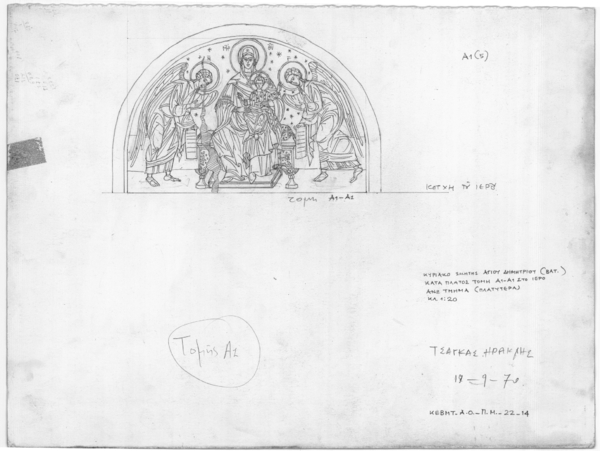 Α1(5)
ΜΡ ΘΥ
ΚΟΓΧΗ ΤΟΥ ΙΕΡΟΥ
ΤΟΜΗ Α1-Α1
ΚΥΡΙΑΚΟ ΣΚΗΤΗΣ ΑΓΙΟΥ ΔΗΜΗΤΡΙΟΥ (ΒΑΤ.)
ΚΑΤΑ ΠΛΑΤΟΣ ΤΟΜΗ Α1-Α1 ΣΤΟ ΙΕΡΟ
ΑΝΩ ΤΜΗΜΑ (ΠΛΑΤΥΤΕΡΑ)
ΚΛ. 1:20
Τομής Α1
ΤΣΑΓΚΑΣ ΗΡΑΚΛΗΣ
ΚΕΒΗΤ-Α.Ο-Π.Μ-22-14